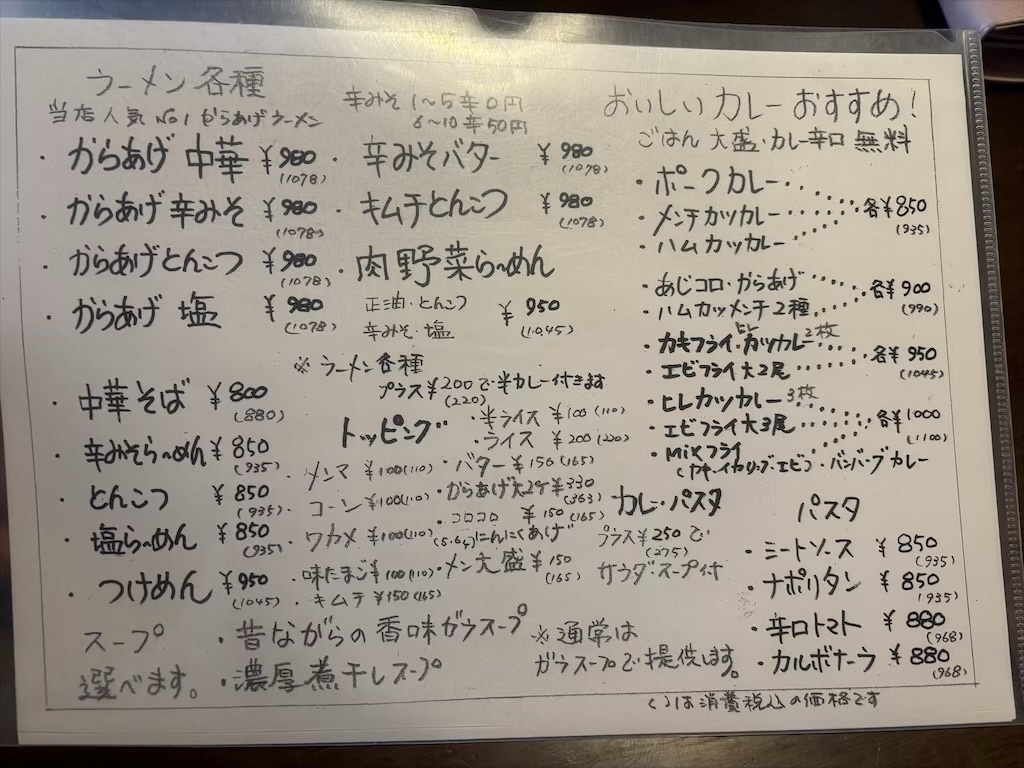 ラーメン各種
当店人気 No1 からあげラーメン
辛みそ 1〜5辛0円
6〜10辛50円
・からあげ 中華 ¥980
(1078)
・からあげ 辛みそ ¥980
(1078)
・からあげとんこつ ¥980
(1078)
・からあげ 塩 ¥980
(1078)
・辛みそバター ¥980
(1078)
・キムチとんこつ ¥980
(1078)
・肉野菜ら〜めん
正油・とんこつ
辛みそ・塩
¥950
(1045)
※ラーメン各種
プラス¥200で半カレー付きます
(220)
・中華そば ¥800
(880)
・辛みそら〜めん ¥850
(935)
・とんこつ ¥850
(935)
・塩ら〜めん ¥850
(935)
・つけめん ¥950
(1045)
トッピング
・半ライス ¥100(110)
・ライス ¥200(220)
・メンマ ¥100(110)
・バター ¥150(165)
・コーン ¥100(110)
・からあげ大2ケ¥330
(363)
・コロコロ ¥150(165)
・ワカメ ¥100(110)
にんにくあげ
・味たまご¥100(110)
・メン大盛¥150
(165)
・キムチ ¥150(165)
スープ
選べます。
・昔ながらの香味ガラスープ
・濃厚煮干しスープ
※通常は
ガラスープで提供します。
おいしいカレーおすすめ!
ごはん 大盛・カレー辛口 無料
・ポークカレー
・メンチカツカレー
・ハムカツカレー
各¥850
(935)
・あじコロ・からあげ
・ハムカツメンチ2種
各¥900
(990)
・カキフライ・ヒレカツカレー2枚
・エビフライ大2尾
各¥950
(1045)
・ヒレカツカレー3枚
・エビフライ大3尾
・Mixフライ
各¥1000
(1100)
カレー・パスタ
プラス¥250で
(275)
サラダ・スープ付
パスタ
・ミートソース ¥850
(935)
・ナポリタン ¥850
(935)
・辛口トマト ¥880
(968)
・カルボナーラ ¥880
(968)
( )は消費税込の価格です